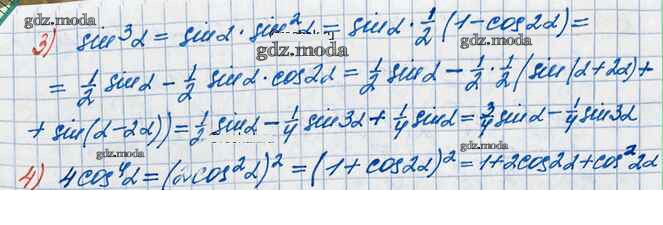 gdz.moda
gdz.moda
3) sin³α = sinα · sin²α = sinα · 1/2 (1 - cos2α) =
gdz.moda
= 1/2 sinα - 1/2 sinα · cos2α = 1/2 sinα - 1/2 · 1/2 (sin(α+2α) +
+ sin(α-2α)) = 1/2 sinα - 1/4 sin3α + 1/4 sinα = 3/4 sinα - 1/4 sin3α
gdz.moda
gdz.moda
4) 4cos⁴α = (2cos²α)² = (1 + cos2α)² = 1 + 2cos2α + cos²2α